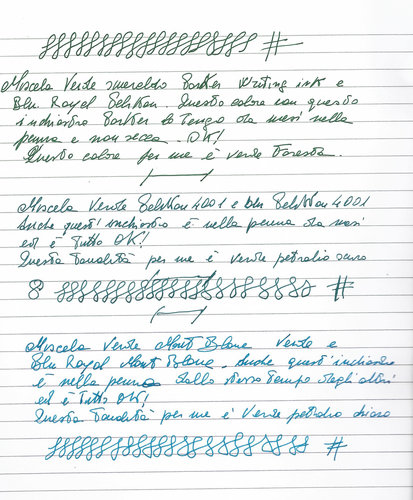 Miscela Verde smeraldo Parker Writing ink e
Blu Royal Pelikan. Questo colore con questo
inchiostro Parker lo tengo da mesi nella
penna e non secca. OK!
Questo colore per me è verde foresta.
Miscela Verde Pelikan 4001 e blu Pelikan 4001
Anche quest'inchiostro è nella penna da mesi
ed è tutto OK!
Questa tonalità per me è verde petrolio scuro
Miscela Verde Mont Blanc Verde e
Blu Royal Mont Blanc. Anche quest'inchiostro
è nella penna dallo stesso tempo degli altri
ed è tutto OK!
Questa tonalità per me è verde petrolio chiaro